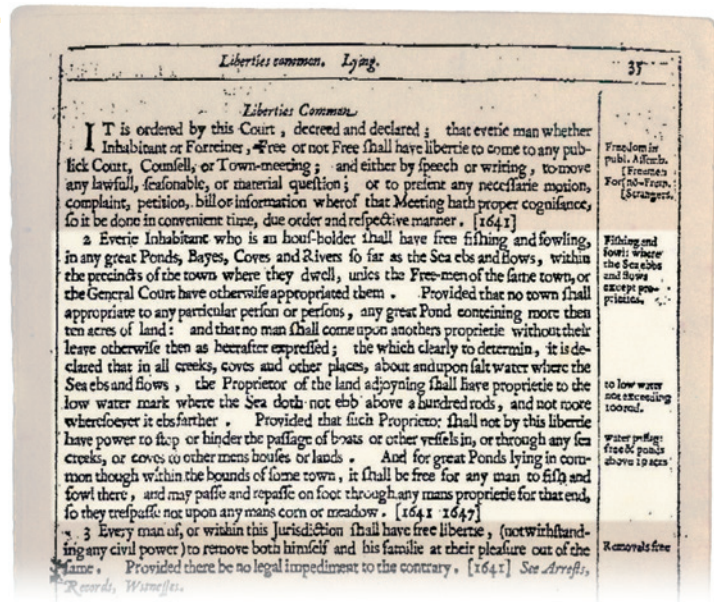 Liberties common. Lying. 35
Liberties Common
IT is ordered by this Court, decreed and declared; that everie man whether
Inhabitant or Forreiner, Free or not Free shall have libertie to come to any pub-
lick Court, Counsell, or Town-meeting; and either by speech or writing, to move
any lawfull, seasonable, or material question; or to present any necessarie motion,
complaint, petition, bill or information wherof that Meeting hath proper cognisance,
so it be done in convenient time, due order and respective manner. [1641]
Freedom in
publ. Assemb.
[Freemen
[Strangers.
2 Everie Inhabitant who is an hous-holder shall have free fishing and fowling,
in any great Ponds, Bayes, Coves and Rivers so far as the Sea ebs and flows, within
the precincts of the town where they dwell, unles the Free-men of the same town, or
the General Court have otherwise appropriated them. Provided that no town shall
appropriate to any particular person or persons, any great Pond conteining more then
ten acres of land: and that no man shall come upon anothers proprietie without their
leave otherwise then as heerafter expressed; the which clearly to determin, it is de-
clared that in all creeks, coves and other places, about and upon salt water where the
Sea ebs and flows, the Proprietor of the land adjoyning shall have proprietie to the
low water mark where the Sea doth not ebb above a hundred rods, and not more
wheresoever it ebs farther. Provided that such Proprietor shall not by this libertie
have power to stop or hinder the passage of boats or other vessels in, or through any sea
creeks, or coves to other mens houses or lands. And for great Ponds lying in com-
mon though within the bounds of some town, it shall be free for any man to fish and
fowl there, and may passe and repasse on foot through any mans proprietie for that end,
so they trespasse not upon any mans corn or meadow. [1641 1647]
Fishing and
fowl: where
the Sea ebbs
and flows
except pro-
prieties.
to low water
not exceeding
100 rod.
water passage
free & ponds
above 10 acrs
3 Every man of, or within this Jurisdiction shall have free libertie, (notwithstand-
ing any civil power) to remove both himself and his familie at their pleasure out of the
same. Provided there be no legal impediment to the contrary. [1641] See Arrests,
Records, Witnesses.
Removals free